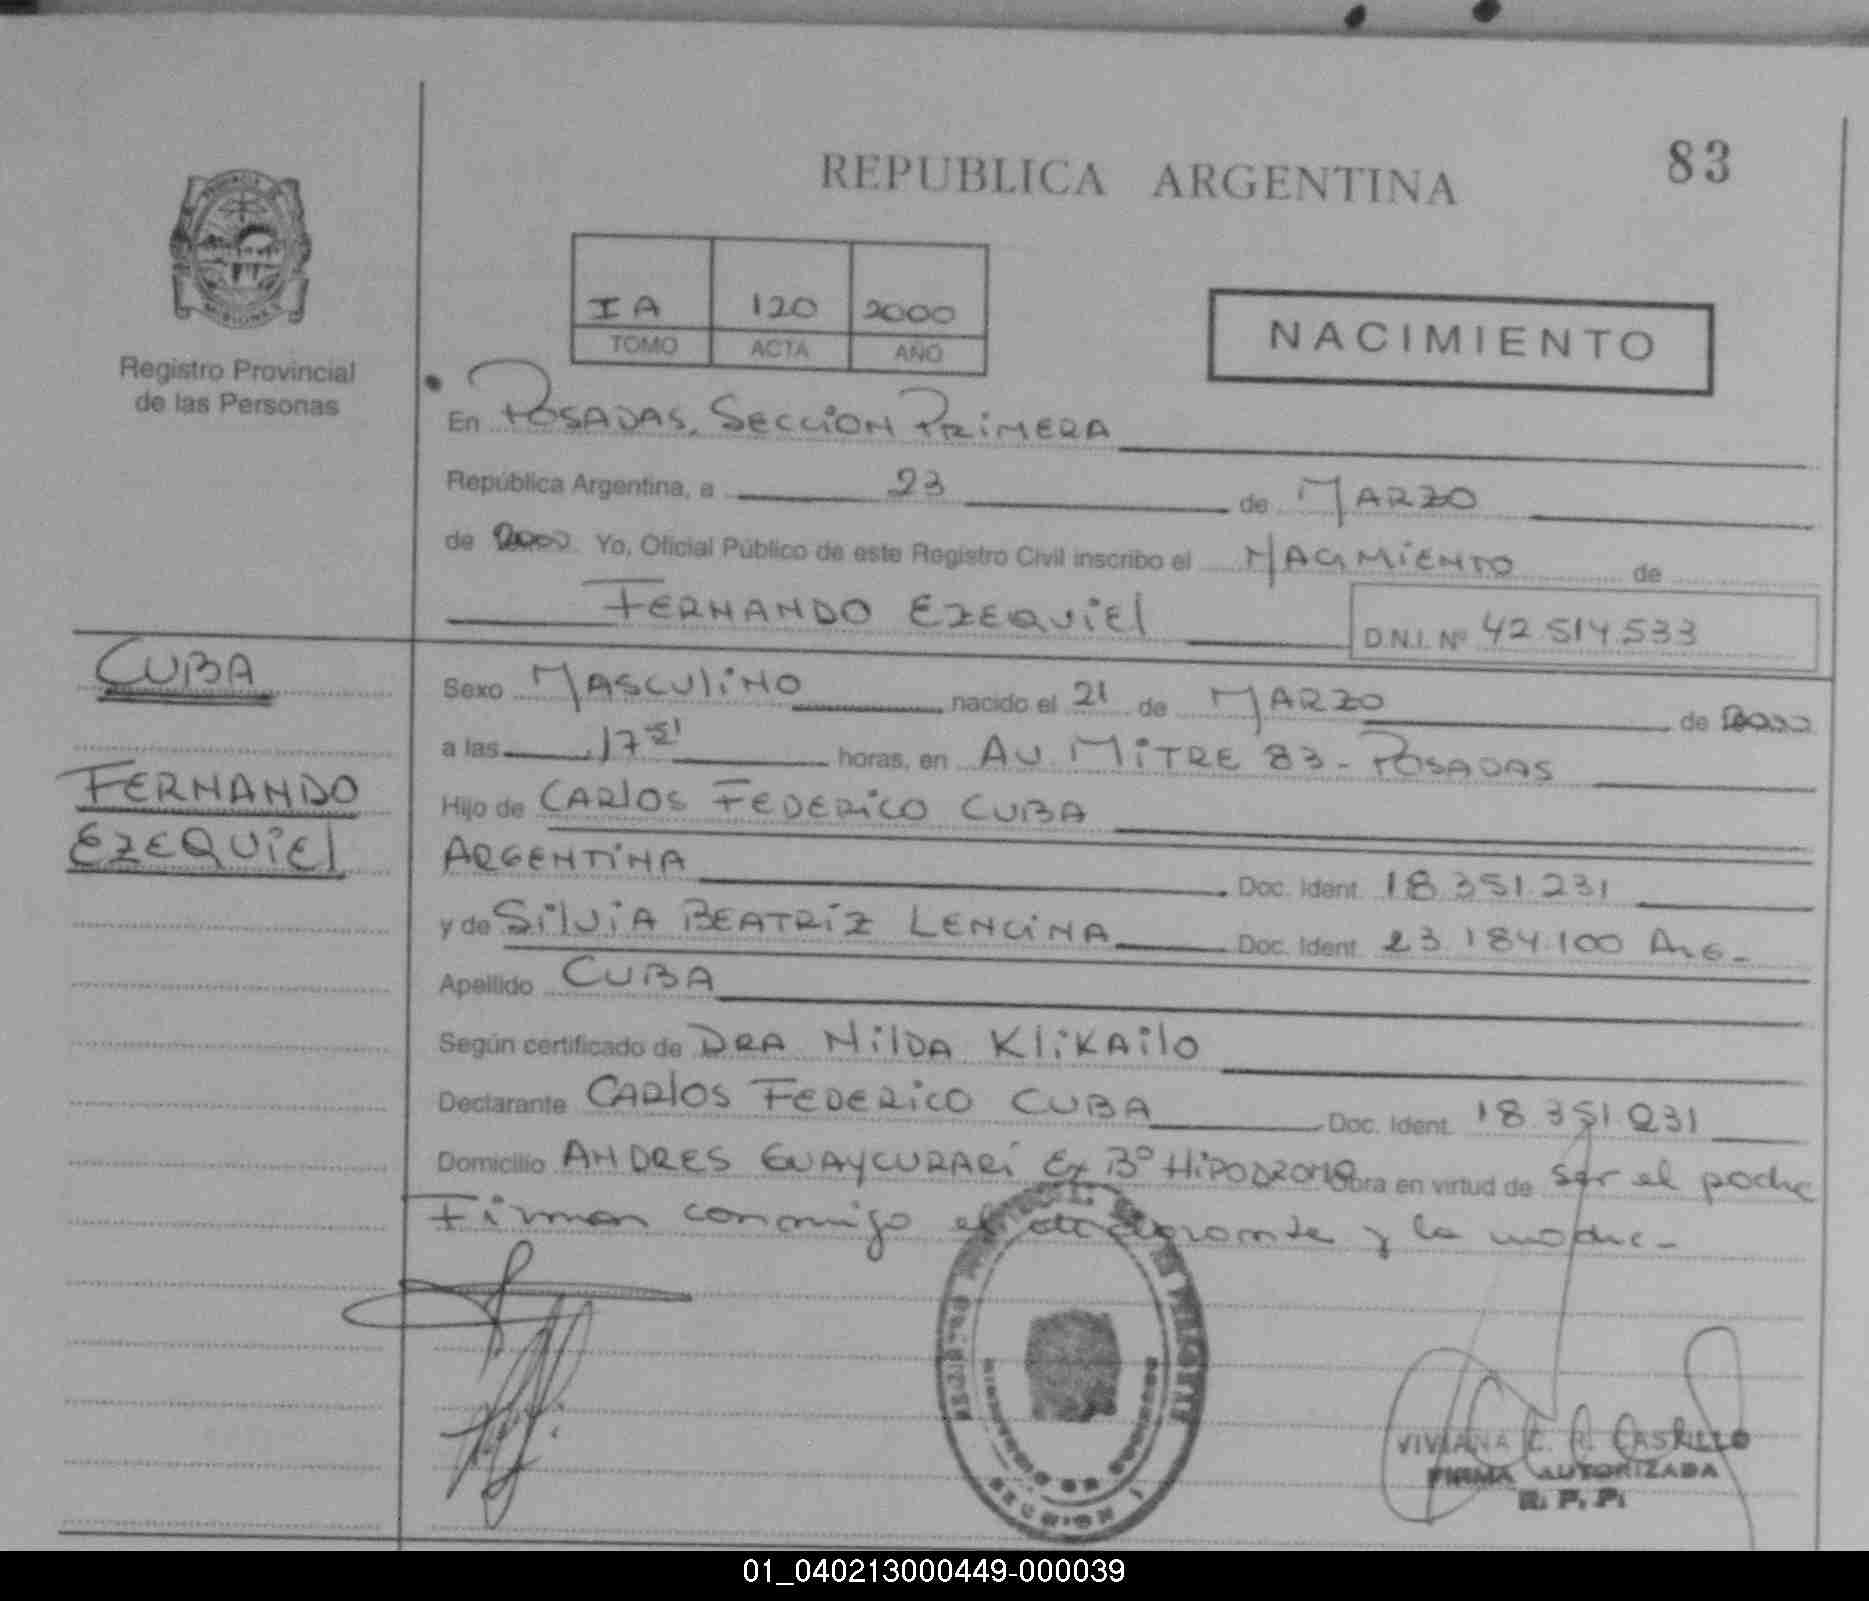 REPUBLICA ARGENTINA
83
Registro Provincial
de las Personas
IA 120 2000
TOMO ACTA AÑO
NACIMIENTO
En POSADAS, SECCION PRIMERA
República Argentina, a 23 de MARZO
de 2000 Yo, Oficial Público de este Registro Civil inscribo el NACIMIENTO de
FERNANDO EZEQUIEL
D.N.I. Nº 42.514.533
CUBA
FERNANDO
EZEQUIEL
Sexo MASCULINO nacido el 21 de MARZO de 2000
a las 17 51 horas, en AV. MITRE 83 - POSADAS
Hijo de CARLOS FEDERICO CUBA
ARGENTINA Doc. Ident. 18.351.231
y de SILVIA BEATRIZ LENCINA Doc. Ident. 23.184.100 ARG.-
Apellido CUBA
Según certificado de DRA NILDA KLIKAILO
Declarante CARLOS FEDERICO CUBA Doc. Ident. 18.351.231
Domicilio ANDRES GUAYCURARI Ex Bº HIPODROMO Obra en virtud de ser el padre
Firman conmigo el declarante y la madre.-
VIVIANA C. R. CASTILLO
FIRMA AUTORIZADA
R. P. P.
01_040213000449-000039